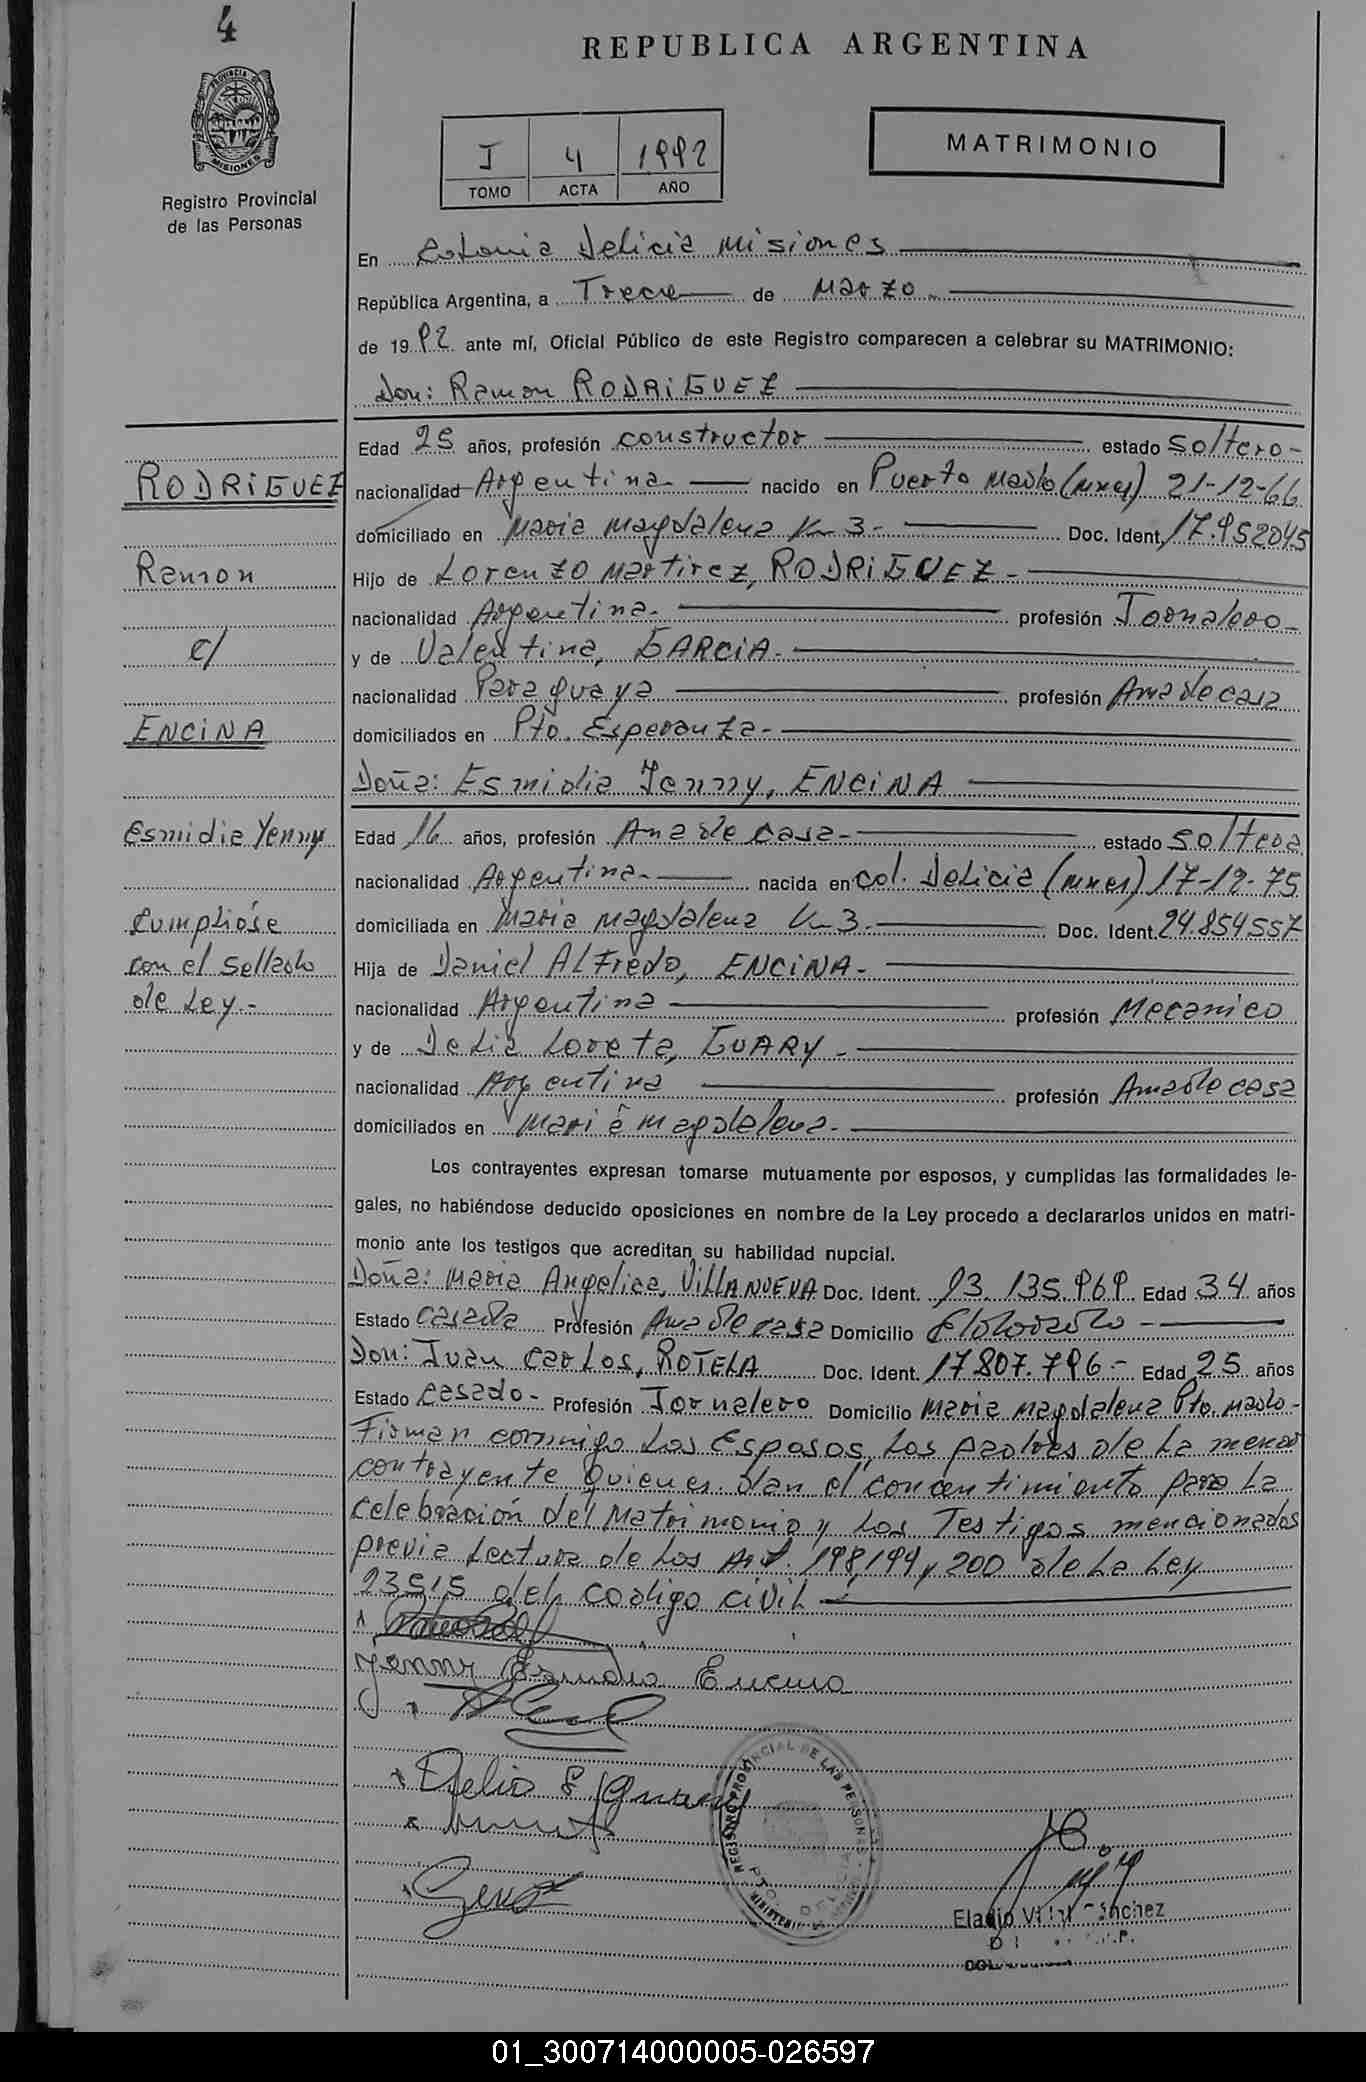 4
REPUBLICA ARGENTINA
PROVINCIA DE MISIONES
Registro Provincial
de las Personas
I 4 1992
TOMO ACTA AÑO
MATRIMONIO
En Colonia Delicia Misiones
República Argentina, a Trece de Marzo
de 1992 ante mí, Oficial Público de este Registro comparecen a celebrar su MATRIMONIO:
Don: Ramon RODRIGUEZ
Edad 25 años, profesión constructor estado soltero-
nacionalidad Argentina nacido en Puerto Mado (mnes) 21-12-66
domiciliado en Maria Magdalena Km 3- Doc. Ident. 17.952045
Hijo de Lorenzo Martirez, RODRIGUEZ-
nacionalidad Argentina- profesión Jornalero-
y de Valentina, GARCIA-
nacionalidad Paraguaya profesión Ama de casa
domiciliados en Pto. Esperanza-
Doña: Esmidia Yenny, ENCINA
Edad 16 años, profesión Ama de casa- estado soltera
nacionalidad Argentina- nacida en Col. Delicia (mnes) 17-12-75
domiciliada en Maria Magdalena Km 3. Doc. Ident. 24.854557
Hija de Daniel ALFredo, ENCINA-
nacionalidad Argentina profesión Mecanico
y de Delia Loreta, GUARY-
nacionalidad Argentina profesión Ama de casa
domiciliados en Maria Magdalena-
RODRIGUEZ
Ramon
c/
ENCINA
Esmidia Yenny
Cumplióse
con el sellado
de Ley.-
Los contrayentes expresan tomarse mutuamente por esposos, y cumplidas las formalidades le-
gales, no habiéndose deducido oposiciones en nombre de la Ley procedo a declararlos unidos en matri-
monio ante los testigos que acreditan su habilidad nupcial.
Doña: Maria Angelica, VILLANUEVA Doc. Ident. 13.135.969 Edad 34 años
Estado casada Profesión Ama de casa Domicilio Eldorado-
Don: Juan Carlos, ROTELA Doc. Ident. 17807.796- Edad 25 años
Estado casado- Profesión Jornalero Domicilio Maria Magdalena Pto. Mado-
Firman conmigo los Esposos, los padres de la menor
contrayente quienes dan el concentimiento para la
celebración del Matrimonio y los Testigos mencionados
previa lectura de los Art. 198,199 y 200 de la Ley
23515 del codigo civil
Yenny Esmidia Encina
Delia Guary
REGISTRO PROVINCIAL DE LAS PERSONAS
Eladio Sánchez
01_300714000005-026597